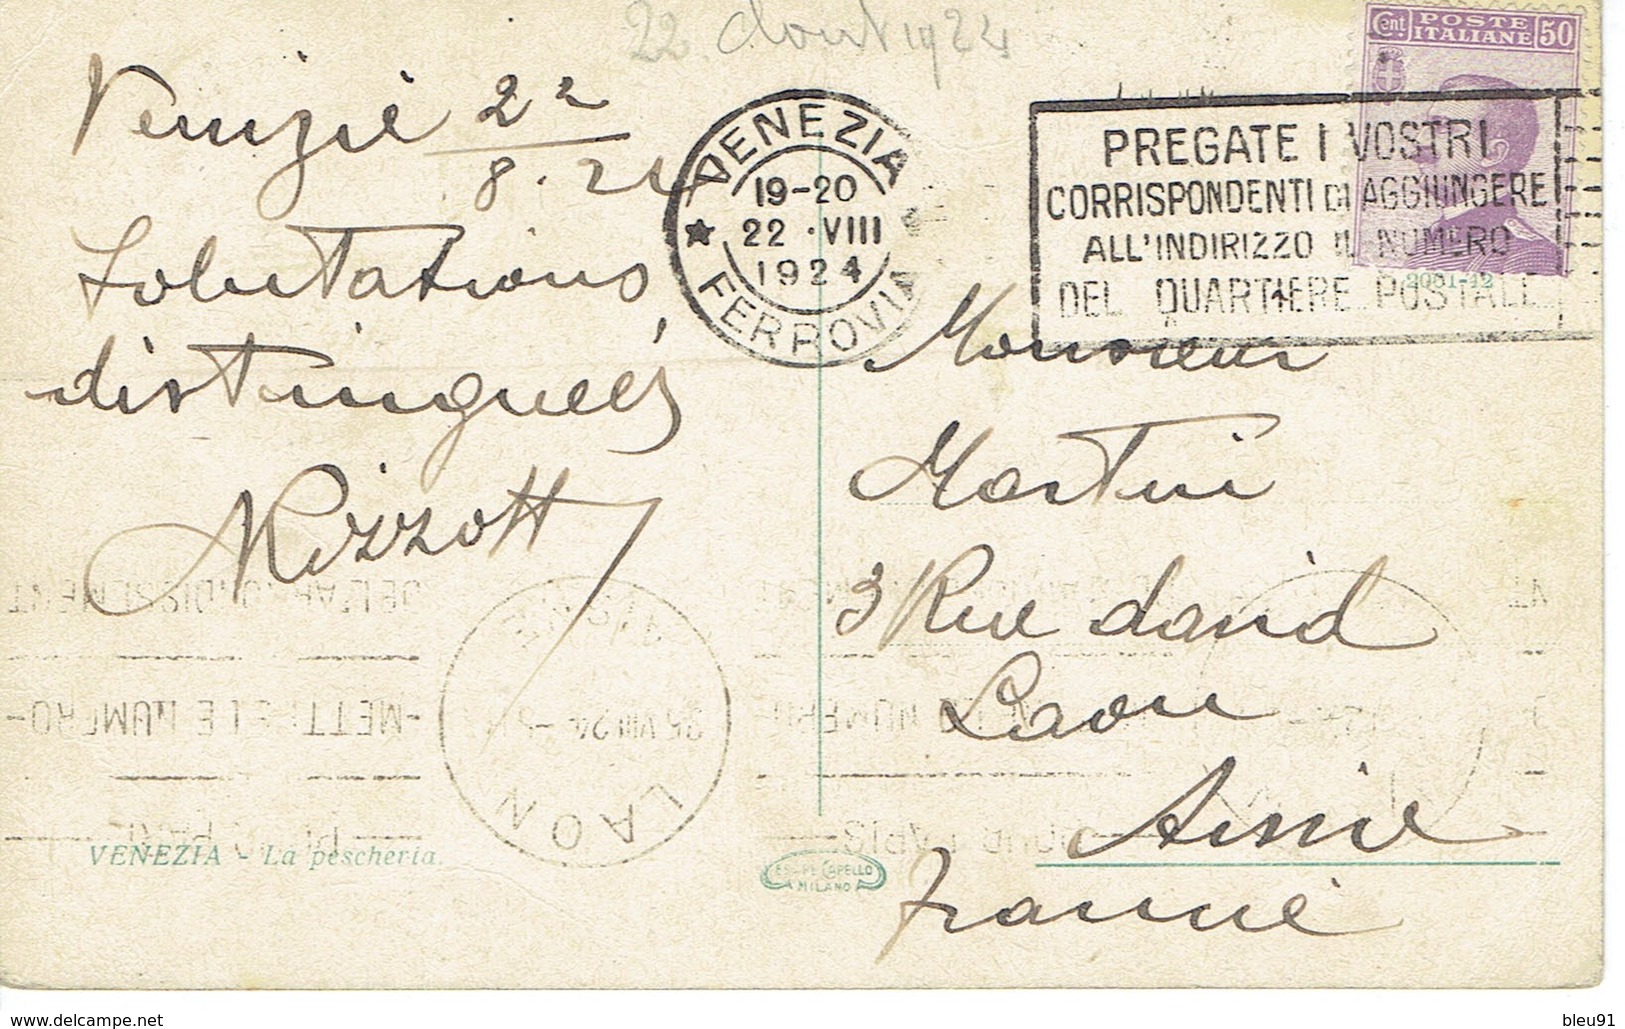 22 Aout 1924
POSTE
ITALIANE
Cent. 50
Venizie 22/8.24
Salutations
distinguées
Rizzotti
VENEZIA
19-20
22 · VIII
1924
FERROVIA
PREGATE I VOSTRI
CORRISPONDENTI DI AGGIUNGERE
ALL'INDIRIZZO IL NUMERO
DEL QUARTIERE POSTALE
2001-12
Monsieur
Martin
3 Rue david
Laon
Aisne
France
LAON
VIII 24
METTRE LE NUMERO
VENEZIA - La pescheria.
CAPELLO
MILANO
delcampe.net
bleu91